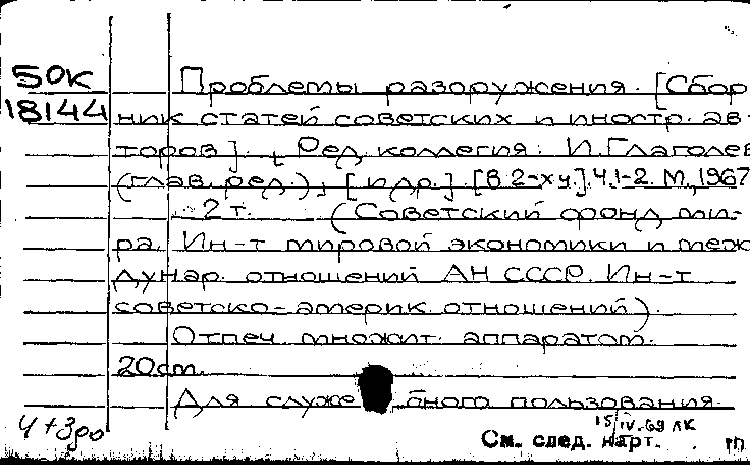 50к Проблемы разоружения. [Сбор
18144 ник статей советских и иностр. ав-
торов]. Ред. коллегия: И. Глаголев
(глав. ред.), [и др.] [В 2-х ч.] Ч. 1-2. М., 1967
2 т. (Советский фонд ми-
ра. Ин-т мировой экономики и меж
дунар. отношений АН СССР. Ин-т
советско-америк. отношений).
Отпеч. множит. аппаратом.
20 cm.
Для служебного пользования.
15/IV.69 ЛК
См. след. карт.